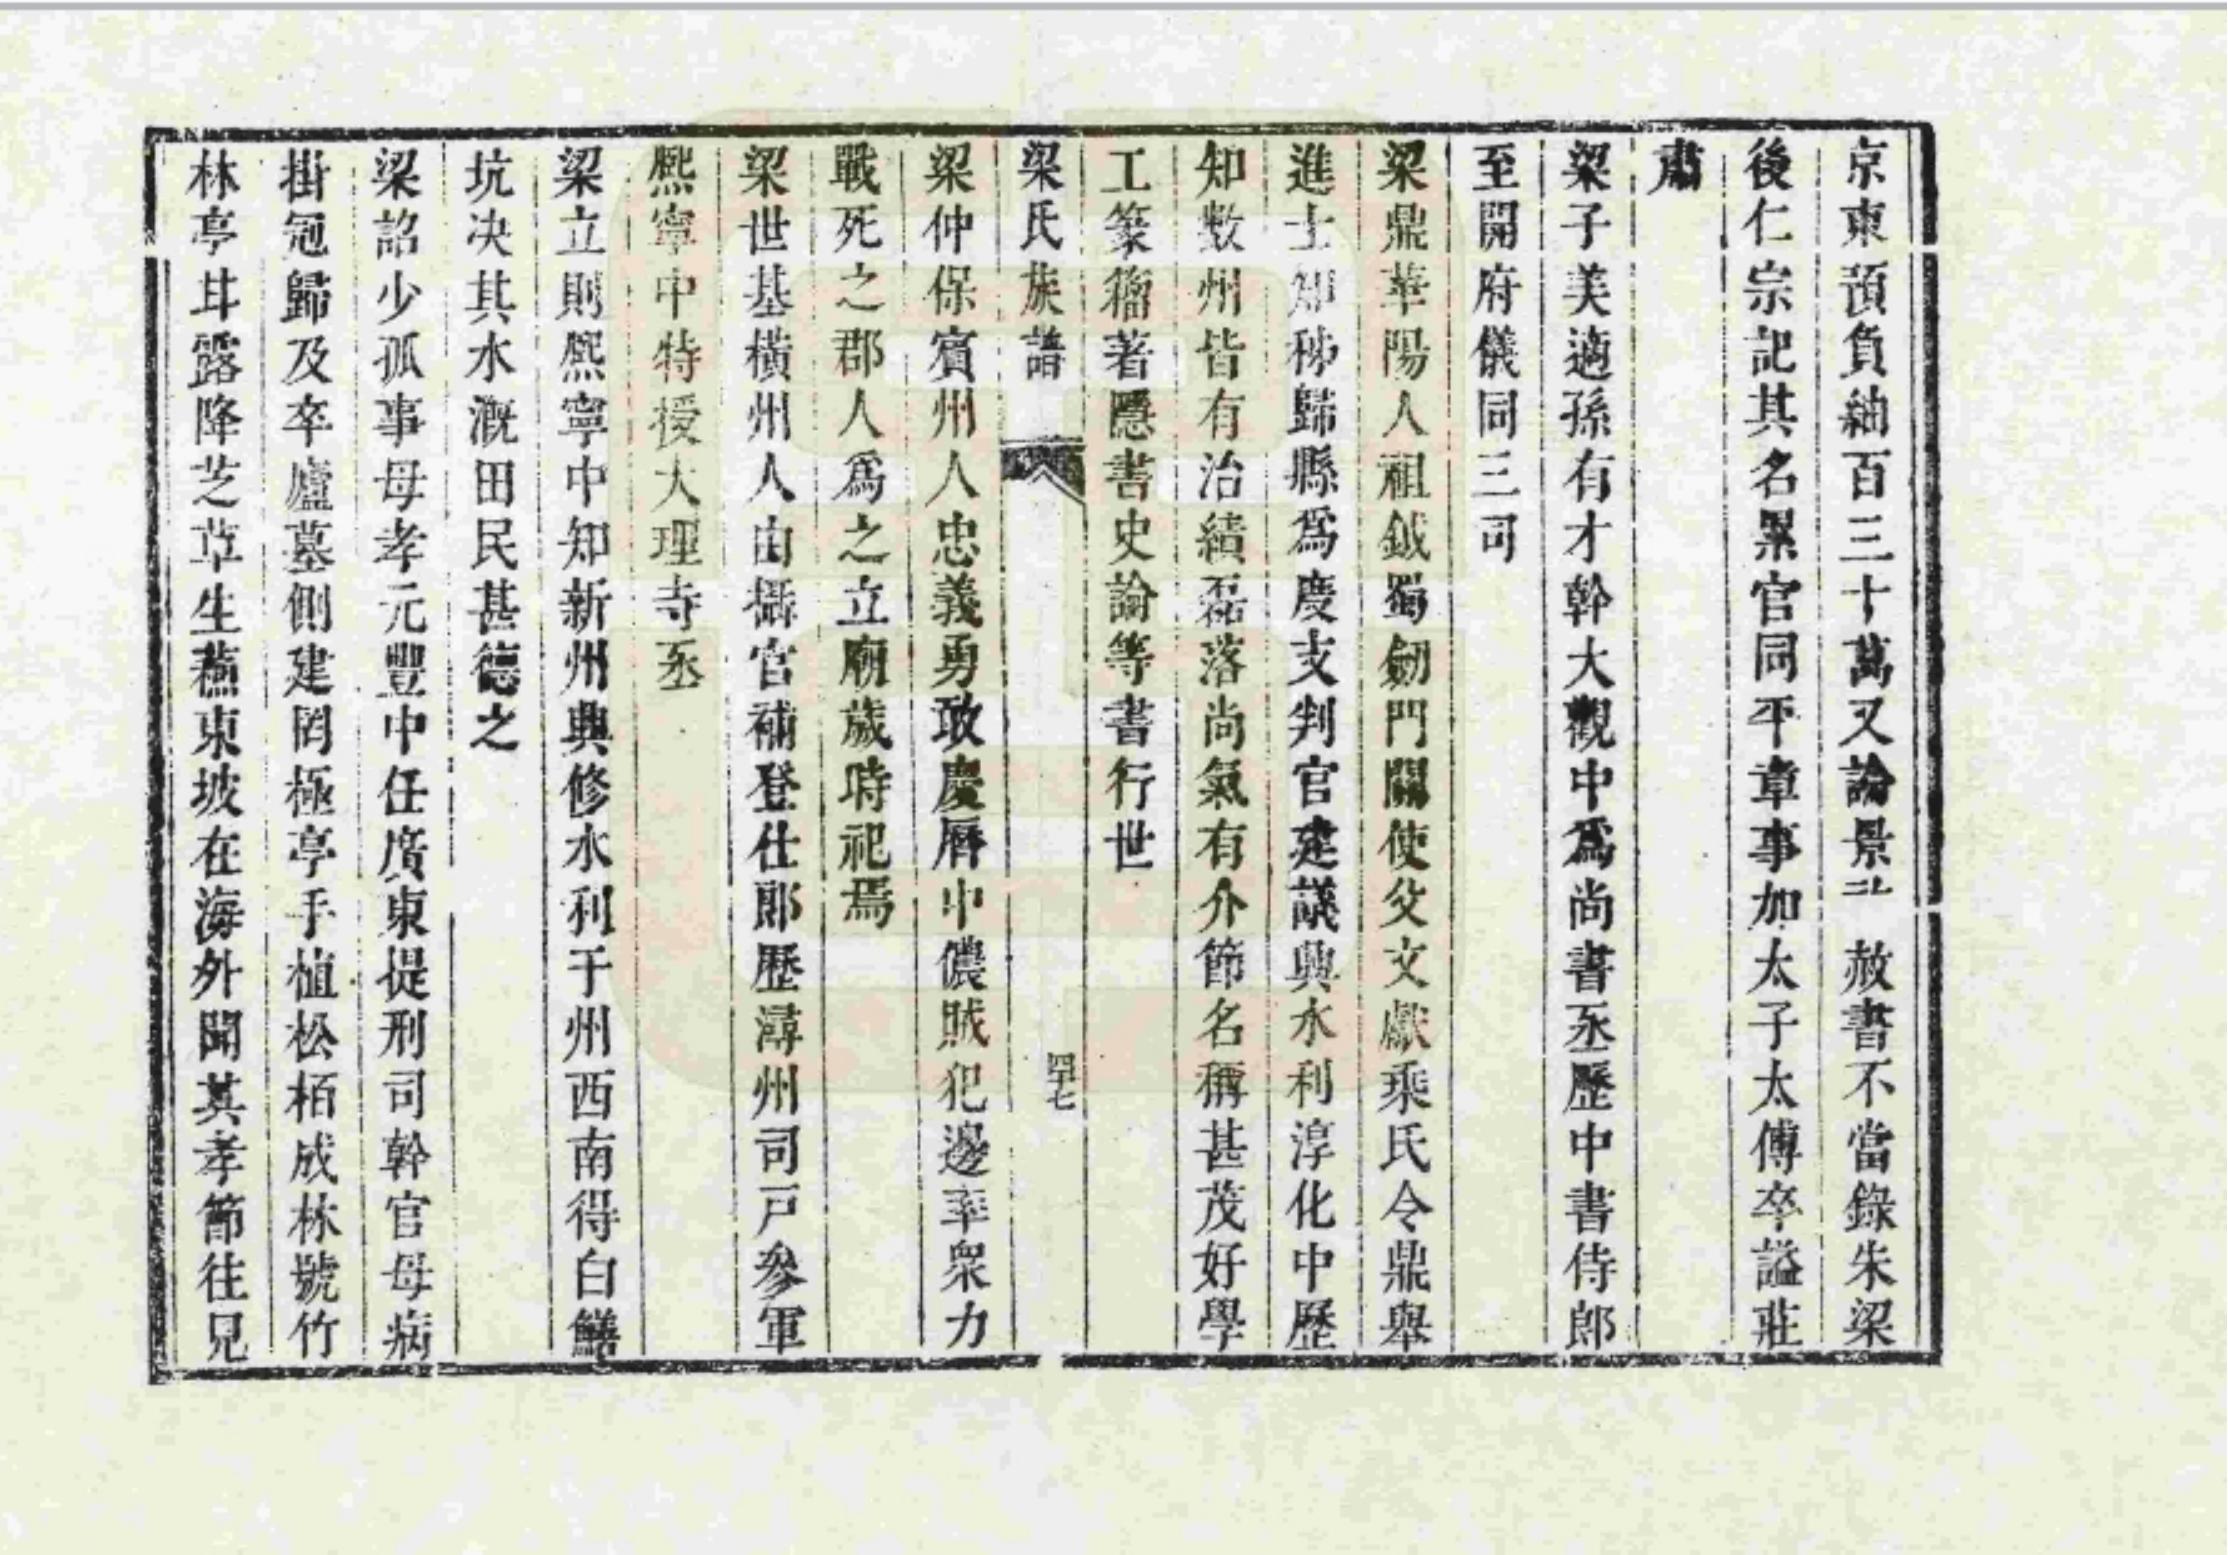 京東預負紬百三十萬又論景 赦書不當錄朱梁
後仁宗記其名累官同平章事加太子太傅卒謚莊
肅
梁子美適孫有才幹大觀中爲尚書丞歷中書侍郎
至開府儀同三司
梁鼎華陽人祖鉞蜀劒門關使父文獻乘氏令鼎舉
進士知秭歸縣爲度支判官建議興水利淳化中歷
知數州皆有治績磊落尚氣有介節名稱甚茂好學
工篆籀著隱書史論等書行世
梁氏族譜
四十七
梁仲保賓州人忠義勇敢慶曆中儂賊犯邊率衆力
戰死之郡人爲之立廟歲時祀焉
梁世基橫州人由攝官補登仕郎歷潯州司戸參軍
熈寧中特授大理寺丞
梁立則熈寧中知新州典修水利于州西南得白鱔
坑决其水溉田民甚德之
梁詔少孤事母孝元豐中任廣東提刑司幹官母病
掛冠歸及卒廬墓側建罔極亭手植松栢成林號竹
林亭甘露降芝草生蘓東坡在海外聞其孝節往見